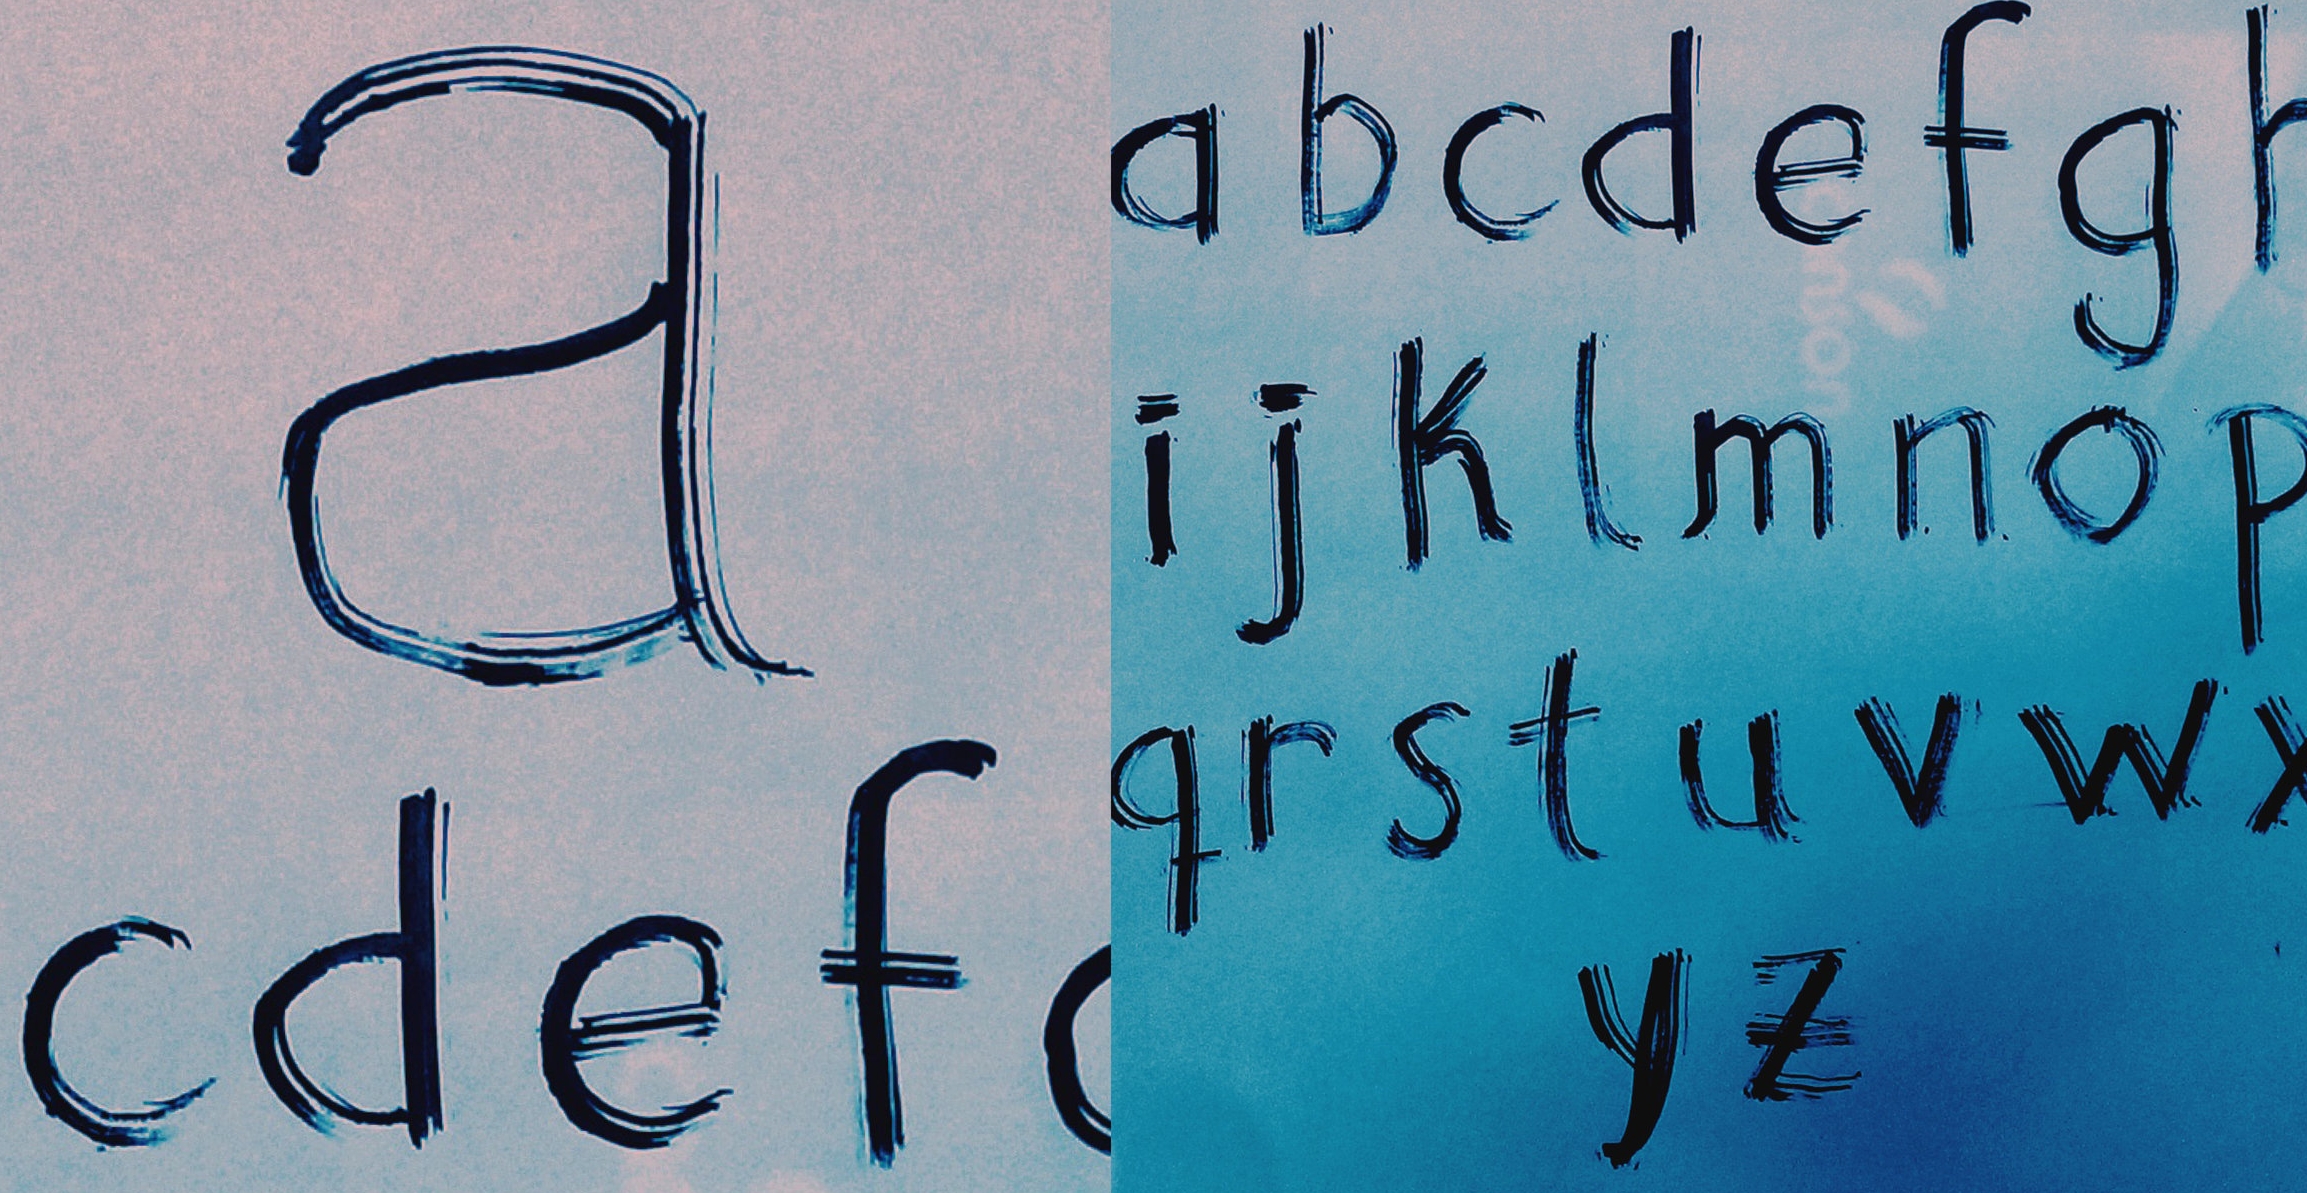 a
c d e f
a b c d e f g h
i j k l m n o p
q r s t u v w x
y z